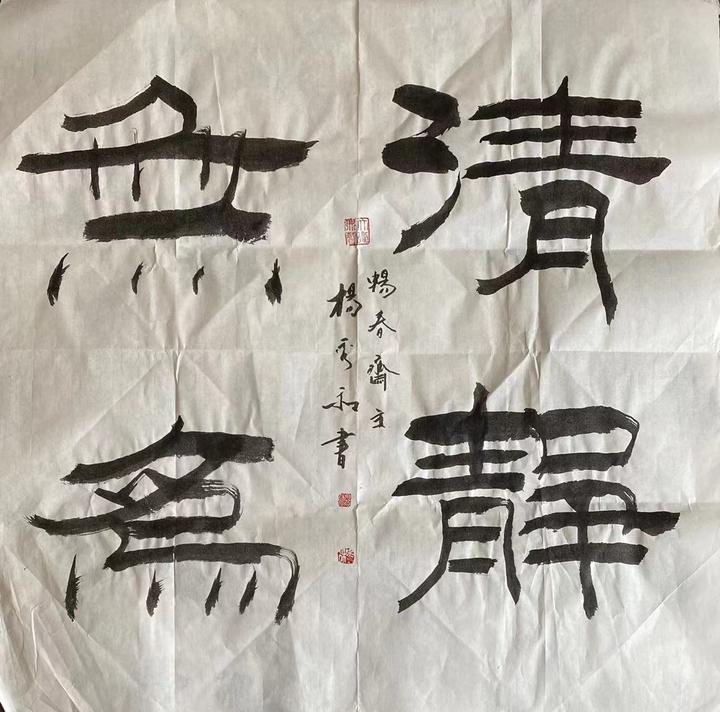 清靜
無為
暢春齋主
楊秀和書